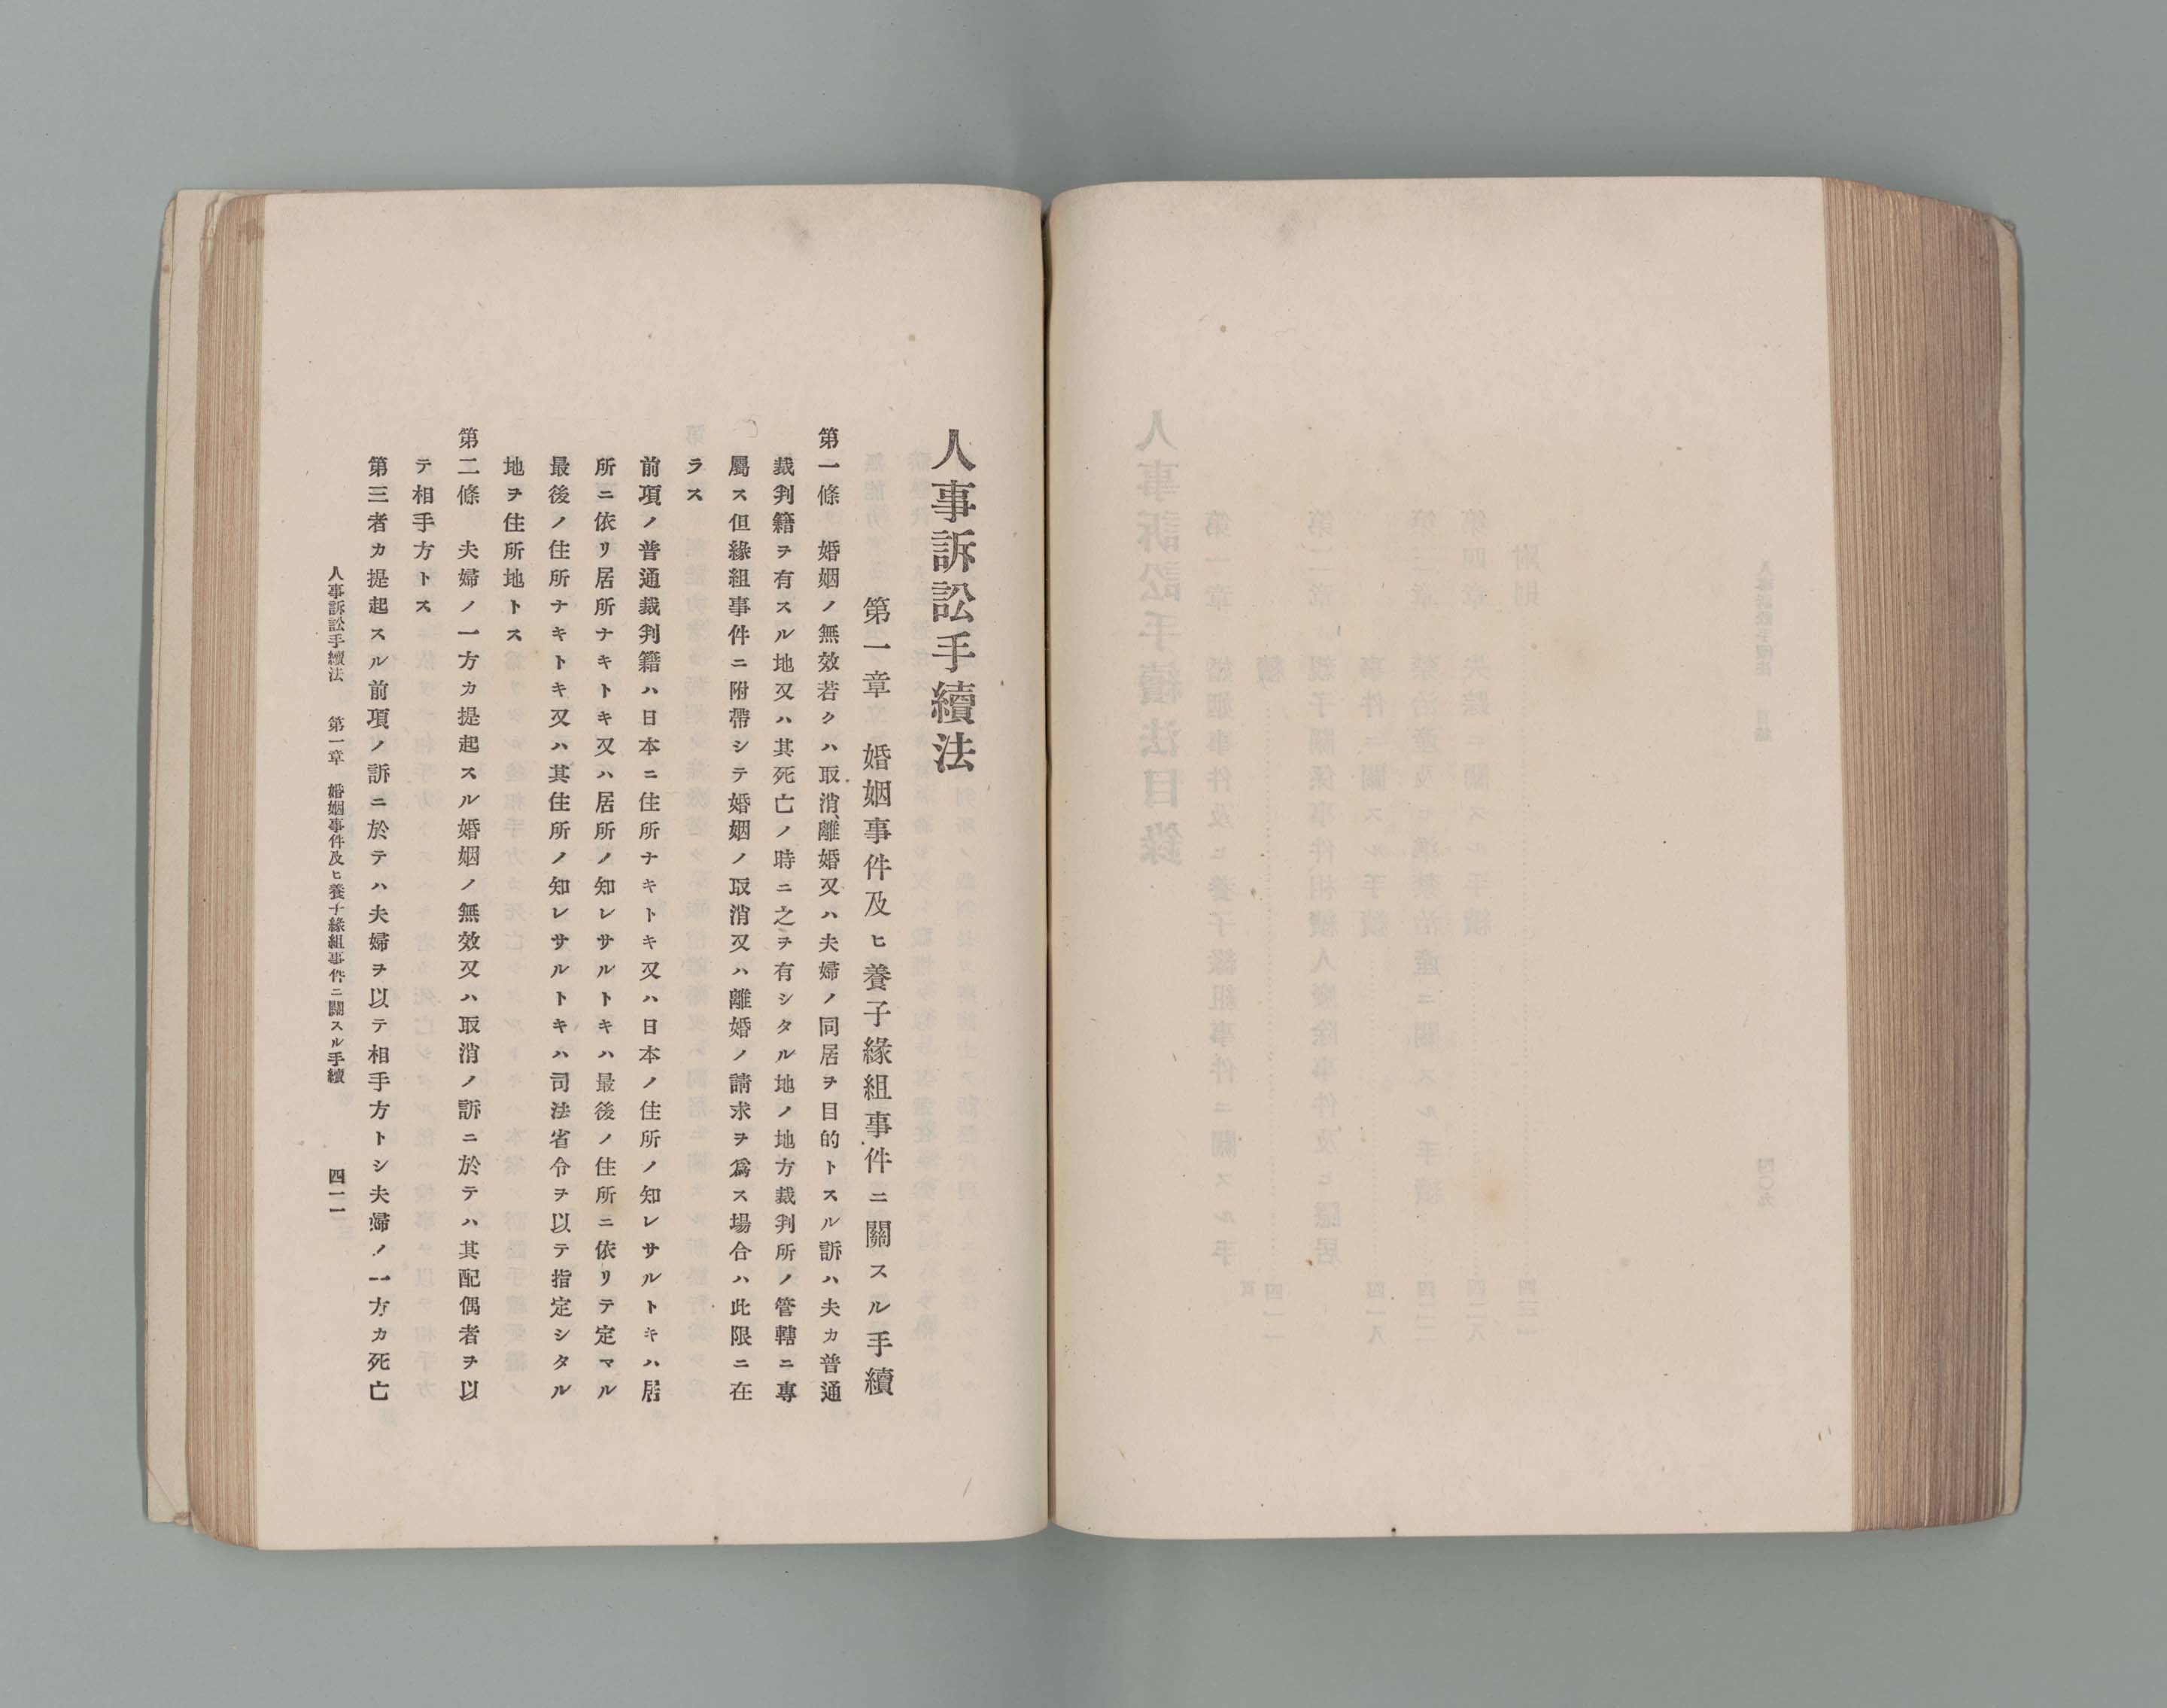 人事訴訟手續法
第一章　婚姻事件及ヒ養子緣組事件ニ關スル手續
第一條　婚姻ノ無效若クハ取消、離婚又ハ夫婦ノ同居ヲ目的トスル訴ハ夫カ普通
裁判籍ヲ有スル地又ハ其死亡ノ時ニ之ヲ有シタル地ノ地方裁判所ノ管轄ニ專
屬ス但緣組事件ニ附帶シテ婚姻ノ取消又ハ離婚ノ請求ヲ爲ス場合ハ此限ニ在
ラス
前項ノ普通裁判籍ハ日本ニ住所ナキトキ又ハ日本ノ住所ノ知レサルトキハ居
所ニ依リ居所ナキトキ又ハ居所ノ知レサルトキハ最後ノ住所ニ依リテ定マル
最後ノ住所ナキトキ又ハ其住所ノ知レサルトキハ司法省令ヲ以テ指定シタル
地ヲ住所地トス
第二條　夫婦ノ一方カ提起スル婚姻ノ無效又ハ取消ノ訴ニ於テハ其配偶者ヲ以
テ相手方トス
第三者カ提起スル前項ノ訴ニ於テハ夫婦ヲ以テ相手方トシ夫婦ノ一方カ死亡
人事訴訟手續法　第一章　婚姻事件及ヒ養子緣組事件ニ關スル手續　四一一